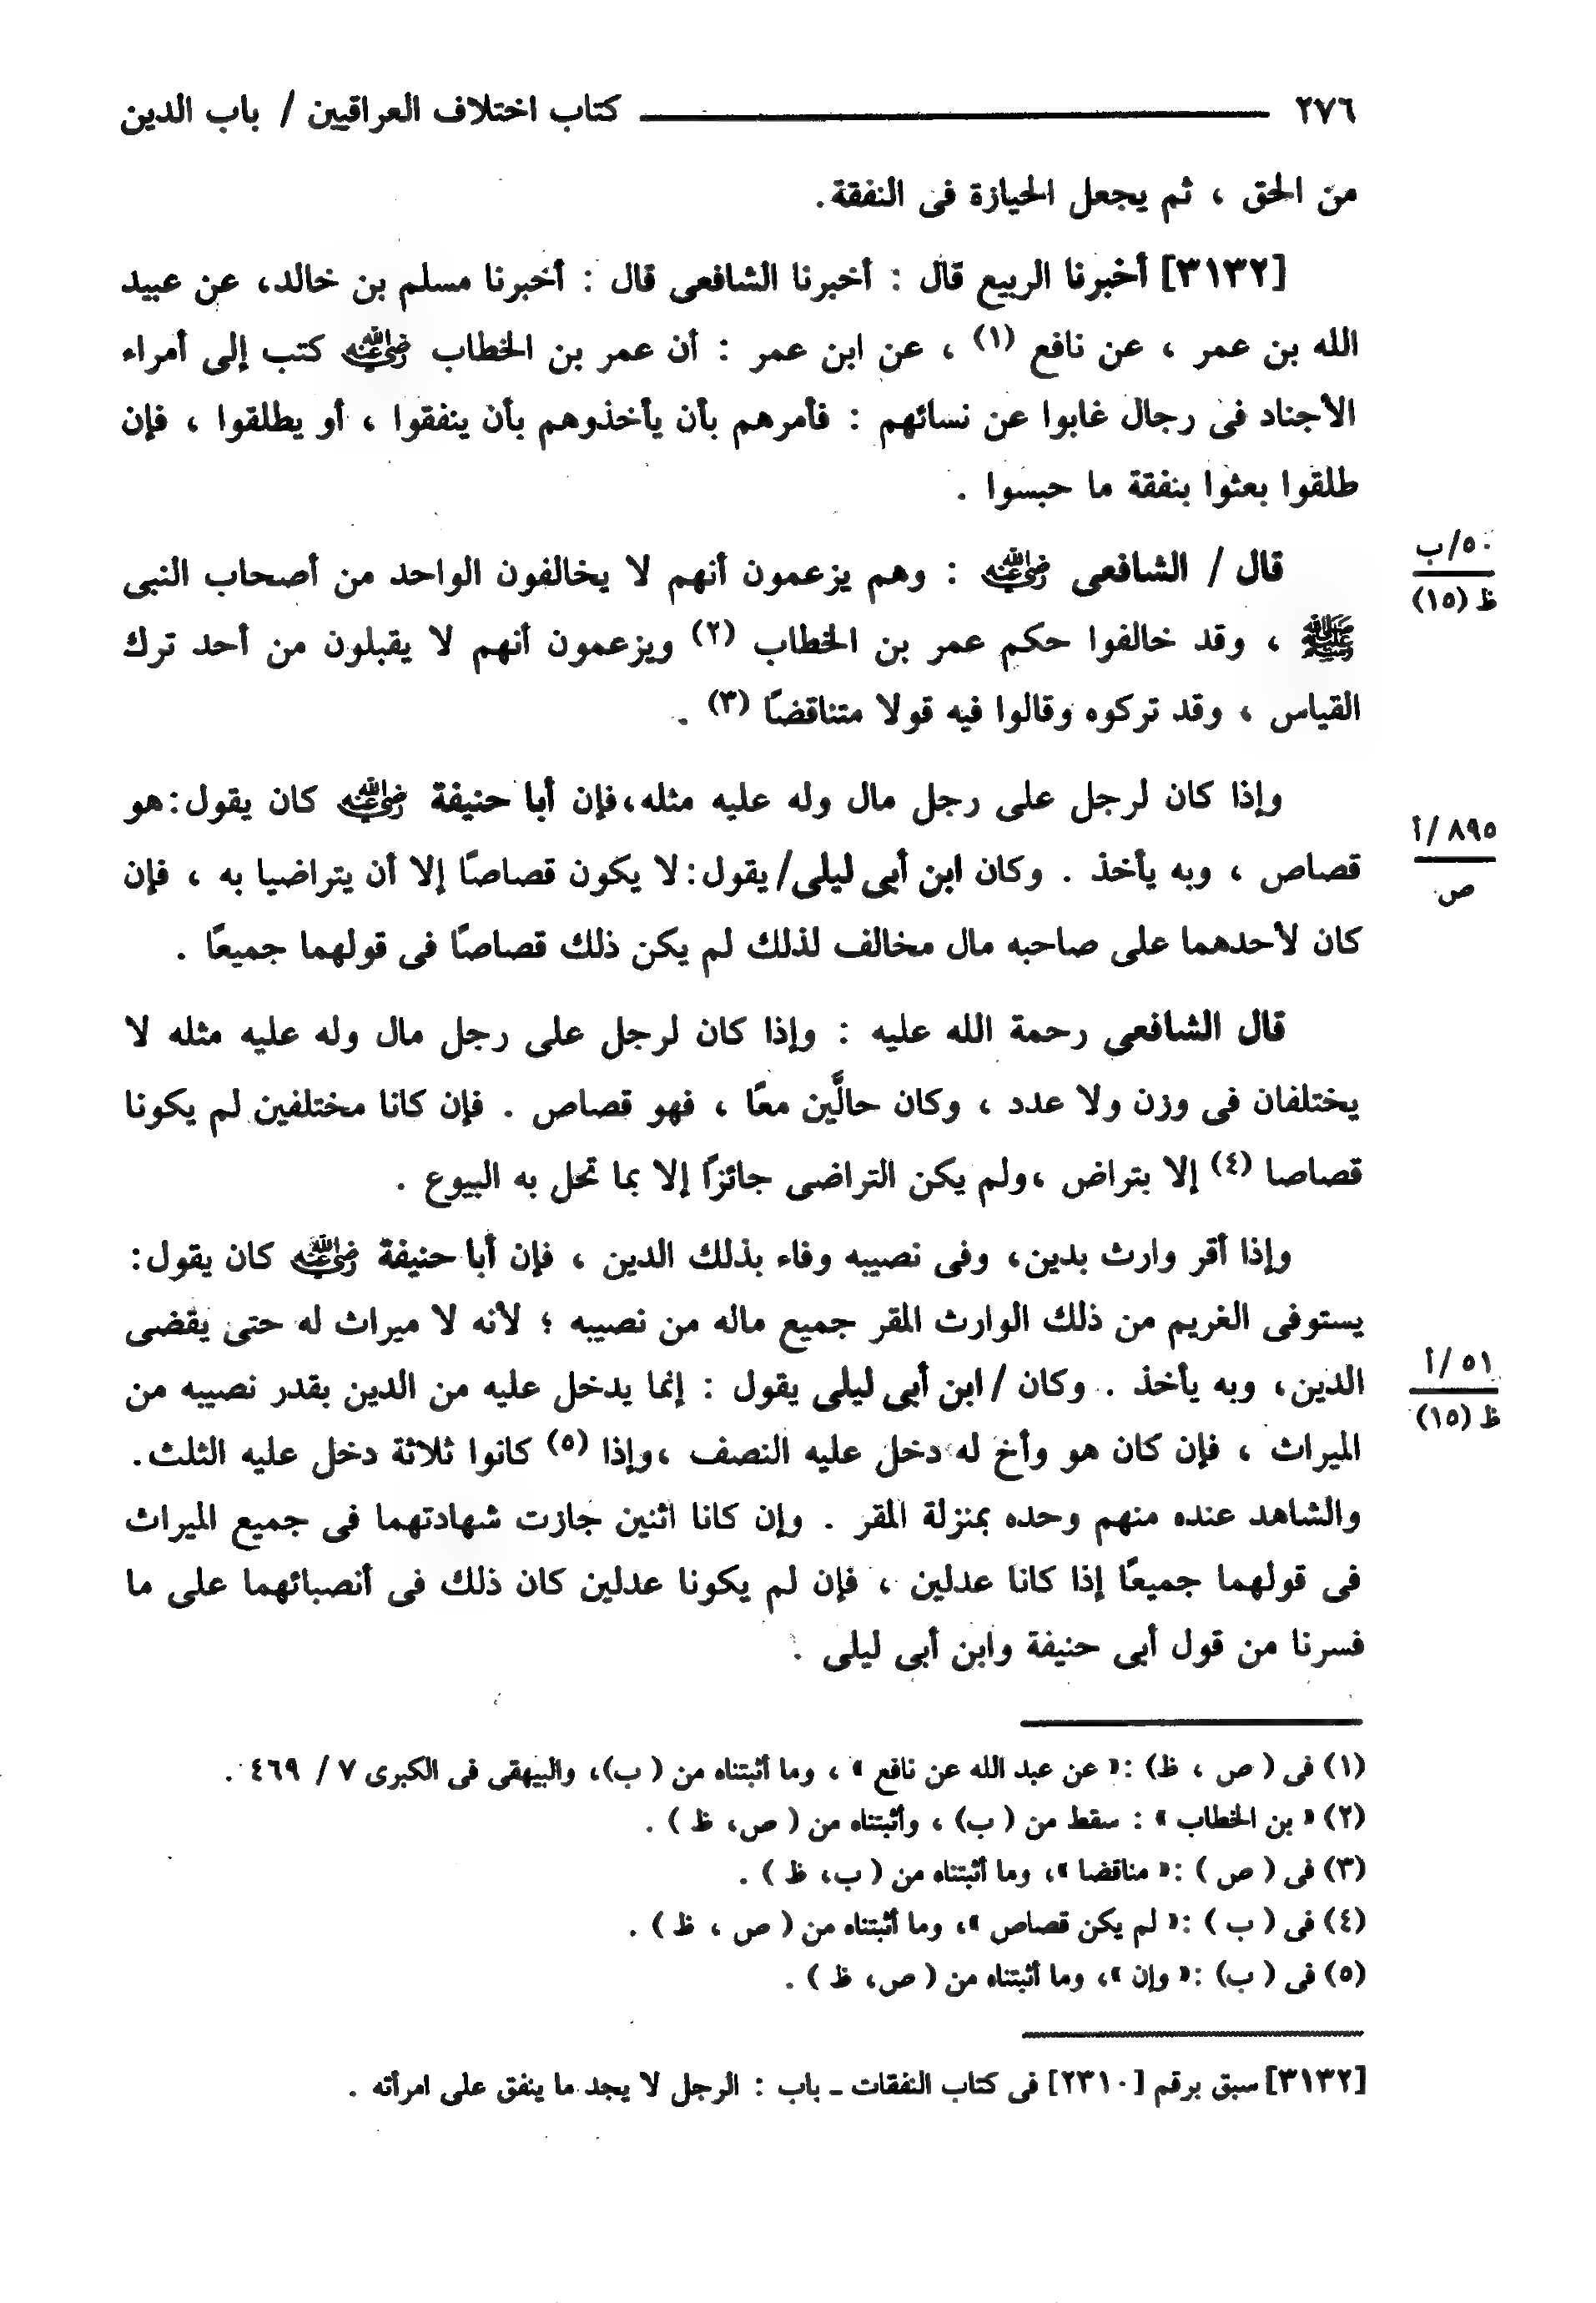 ٢٧٦ كتاب اختلاف العراقيين / باب الدين
من الحق ، ثم يجعل الحيازة فى النفقة.
[٣١٣٢] أخبرنا الربيع قال : أخبرنا الشافعى قال : أخبرنا مسلم بن خالد، عن عبيد
الله بن عمر ، عن نافع (١) ، عن ابن عمر : أن عمر بن الخطاب رضي الله عنه كتب إلى أمراء
الأجناد فى رجال غابوا عن نسائهم : فأمرهم بأن يأخذوهم بأن ينفقوا ، أو يطلقوا ، فإن
طلقوا بعثوا بنفقة ما حبسوا .
٥٠/ب
ظ (١٥)
قال / الشافعى رضي الله عنه : وهم يزعمون أنهم لا يخالفون الواحد من أصحاب النبى
ﷺ ، وقد خالفوا حكم عمر بن الخطاب (٢) ويزعمون أنهم لا يقبلون من أحد ترك
القياس ، وقد تركوه وقالوا فيه قولا متناقضًا (٣) .
وإذا كان لرجل على رجل مال وله عليه مثله،فإن أبا حنيفة رضي الله عنه كان يقول:هو
٨٩٥ /أ
ص
قصاص ، وبه يأخذ . وكان ابن أبى ليلى/ يقول:لا يكون قصاصًا إلا أن يتراضيا به ، فإن
كان لأحدهما على صاحبه مال مخالف لذلك لم يكن ذلك قصاصًا فى قولهما جميعًا .
قال الشافعى رحمة الله عليه : وإذا كان لرجل على رجل مال وله عليه مثله لا
يختلفان فى وزن ولا عدد ، وكان حالَّين معًا ، فهو قصاص . فإن كانا مختلفين لم يكونا
قصاصا (٤) إلا بتراض ،ولم يكن التراضى جائزًا إلا بما تحل به البيوع .
وإذا أقر وارث بدين، وفى نصيبه وفاء بذلك الدين ، فإن أبا حنيفة رضي الله عنه كان يقول:
يستوفى الغريم من ذلك الوارث المقر جميع ماله من نصيبه ؛ لأنه لا ميراث له حتى يقضى
٥١ /أ
ظ (١٥)
الدين، وبه يأخذ . وكان / ابن أبى ليلى يقول : إنما يدخل عليه من الدين بقدر نصيبه من
الميراث ، فإن كان هو وأخ له دخل عليه النصف ،وإذا (٥) كانوا ثلاثة دخل عليه الثلث.
والشاهد عنده منهم وحده بمنزلة المقر . وإن كانا اثنين جازت شهادتهما فى جميع الميراث
فى قولهما جميعًا إذا كانا عدلين ، فإن لم يكونا عدلين كان ذلك فى أنصبائهما على ما
فسرنا من قول أبى حنيفة وابن أبى ليلى .
(١) فى ( ص ، ظ) :« عن عبد الله عن نافع » ، وما أثبتناه من ( ب)، والبيهقى فى الكبرى ٧ / ٤٦٩ .
(٢) « بن الخطاب » : سقط من ( ب) ، وأثبتناه من ( ص، ظ ) .
(٣) فى ( ص ) :« مناقضا »، وما أثبتناه من ( ب، ظ ) .
(٤) فى ( ب ) :« لم يكن قصاص »، وما أثبتناه من ( ص ، ظ ) .
(٥) فى ( ب) :« وإن »، وما أثبتناه من ( ص، ظ ) .
[٣١٣٢] سبق برقم [٢٣١٠] فى كتاب النفقات ـ باب : الرجل لا يجد ما ينفق على امرأته .